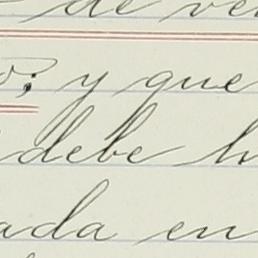 de ve
o; y que
debe h
ada en